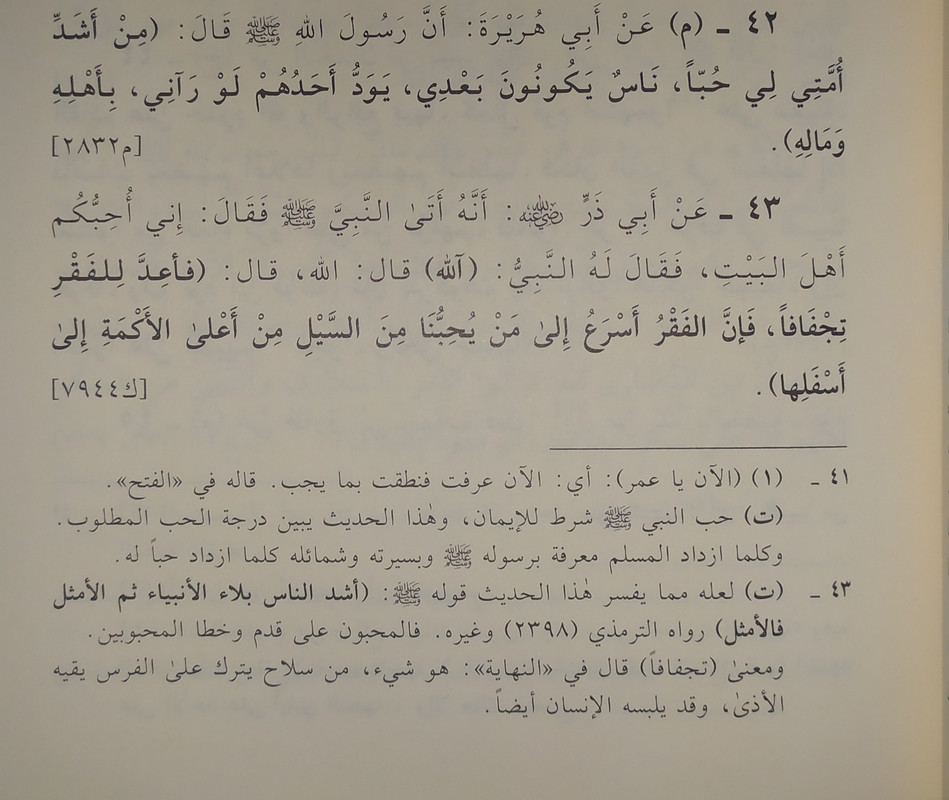 ٤٢ ـ (م) عَنْ أَبِي هُرَيْرَةَ: أَنَّ رَسُولَ اللهِ ﷺ قَالَ: (مِنْ أَشَدِّ
أُمَّتِي لِي حُبّاً، نَاسٌ يَكُونُونَ بَعْدِي، يَوَدُّ أَحَدُهُمْ لَوْ رَآنِي، بِأَهْلِهِ
وَمَالِهِ). [م٢٨٣٢]
٤٣ ـ عَنْ أَبِي ذَرٍّ رضي الله عنه: أَنَّهُ أَتَىٰ النَّبِيَّ ﷺ فَقَالَ: إِني أُحِبُّكُم
أَهْلَ البَيْتِ، فَقَالَ لَهُ النَّبِيُّ: (آلله) قال: الله، قال: (فأعِدَّ لِلفَقْرِ
تِجْفَافاً، فَإِنَّ الفَقْرُ أَسْرَعُ إِلىٰ مَنْ يُحِبُّنَا مِنَ السَّيْلِ مِنْ أَعْلىٰ الأَكْمَةِ إِلىٰ
أَسْفَلِها). [ك٧٩٤٤]
٤١ ـ (١) (الآن يا عمر): أي: الآن عرفت فنطقت بما يجب. قاله في «الفتح».
(ت) حب النبي ﷺ شرط للإيمان، وهٰذا الحديث يبين درجة الحب المطلوب.
وكلما ازداد المسلم معرفة برسوله ﷺ وبسيرته وشمائله كلما ازداد حباً له.
٤٣ ـ (ت) لعله مما يفسر هٰذا الحديث قوله ﷺ: (أشد الناس بلاء الأنبياء ثم الأمثل
فالأمثل) رواه الترمذي (٢٣٩٨) وغيره. فالمحبون على قدم وخطا المحبوبين.
ومعنىٰ (تجفافاً) قال في «النهاية»: هو شيء، من سلاح يترك علىٰ الفرس يقيه
الأذىٰ، وقد يلبسه الإنسان أيضاً.